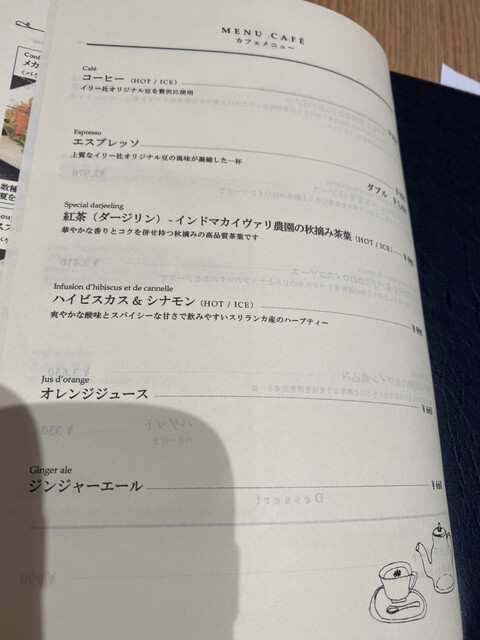 MENU CAFÉ
カフェメニュー
Café
コーヒー (HOT / ICE)
イリー社オリジナル豆を贅沢に使用
Espresso
エスプレッソ
上質なイリー社オリジナル豆の風味が凝縮した一杯
ダブル
Special darjeeling
紅茶（ダージリン）- インドマカイヴァリ農園の秋摘み茶葉 (HOT / ICE)
華やかな香りとコクを併せ持つ秋摘みの高品質茶葉です
Infusion d'hibiscus et de cannelle
ハイビスカス & シナモン (HOT / ICE)
爽やかな酸味とスパイシーな甘さで飲みやすいスリランカ産のハーブティー
Jus d'orange
オレンジジュース ¥ 660
Ginger ale
ジンジャーエール